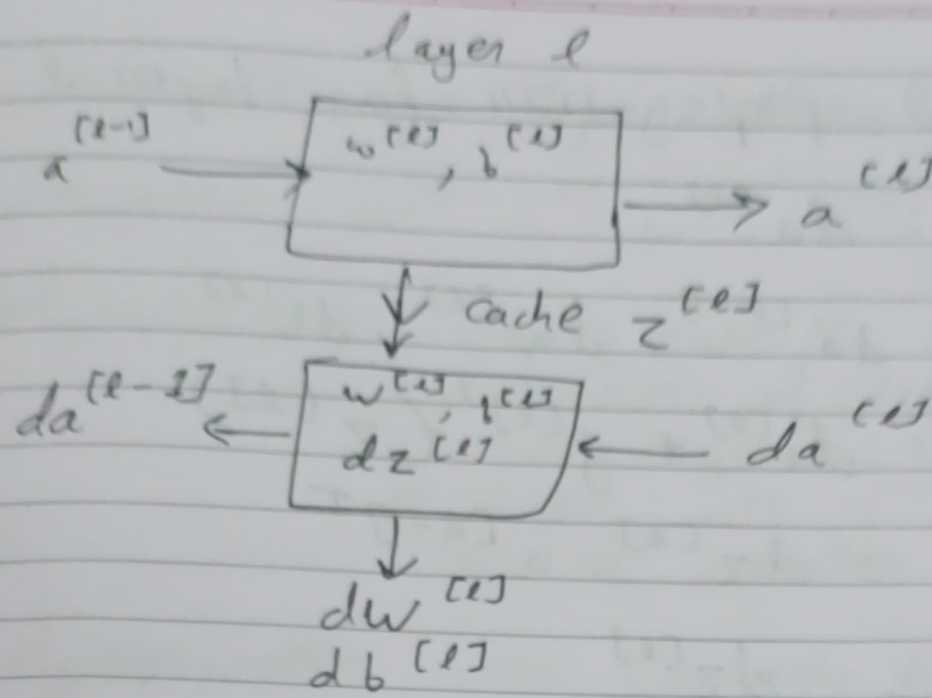 layer l
a^[l-1] → w^[l], b^[l] → a^[l]
cache z^[l]
da^[l-1] ← w^[l], b^[l] ← da^[l]
dz^[l]
dw^[l]
db^[l]